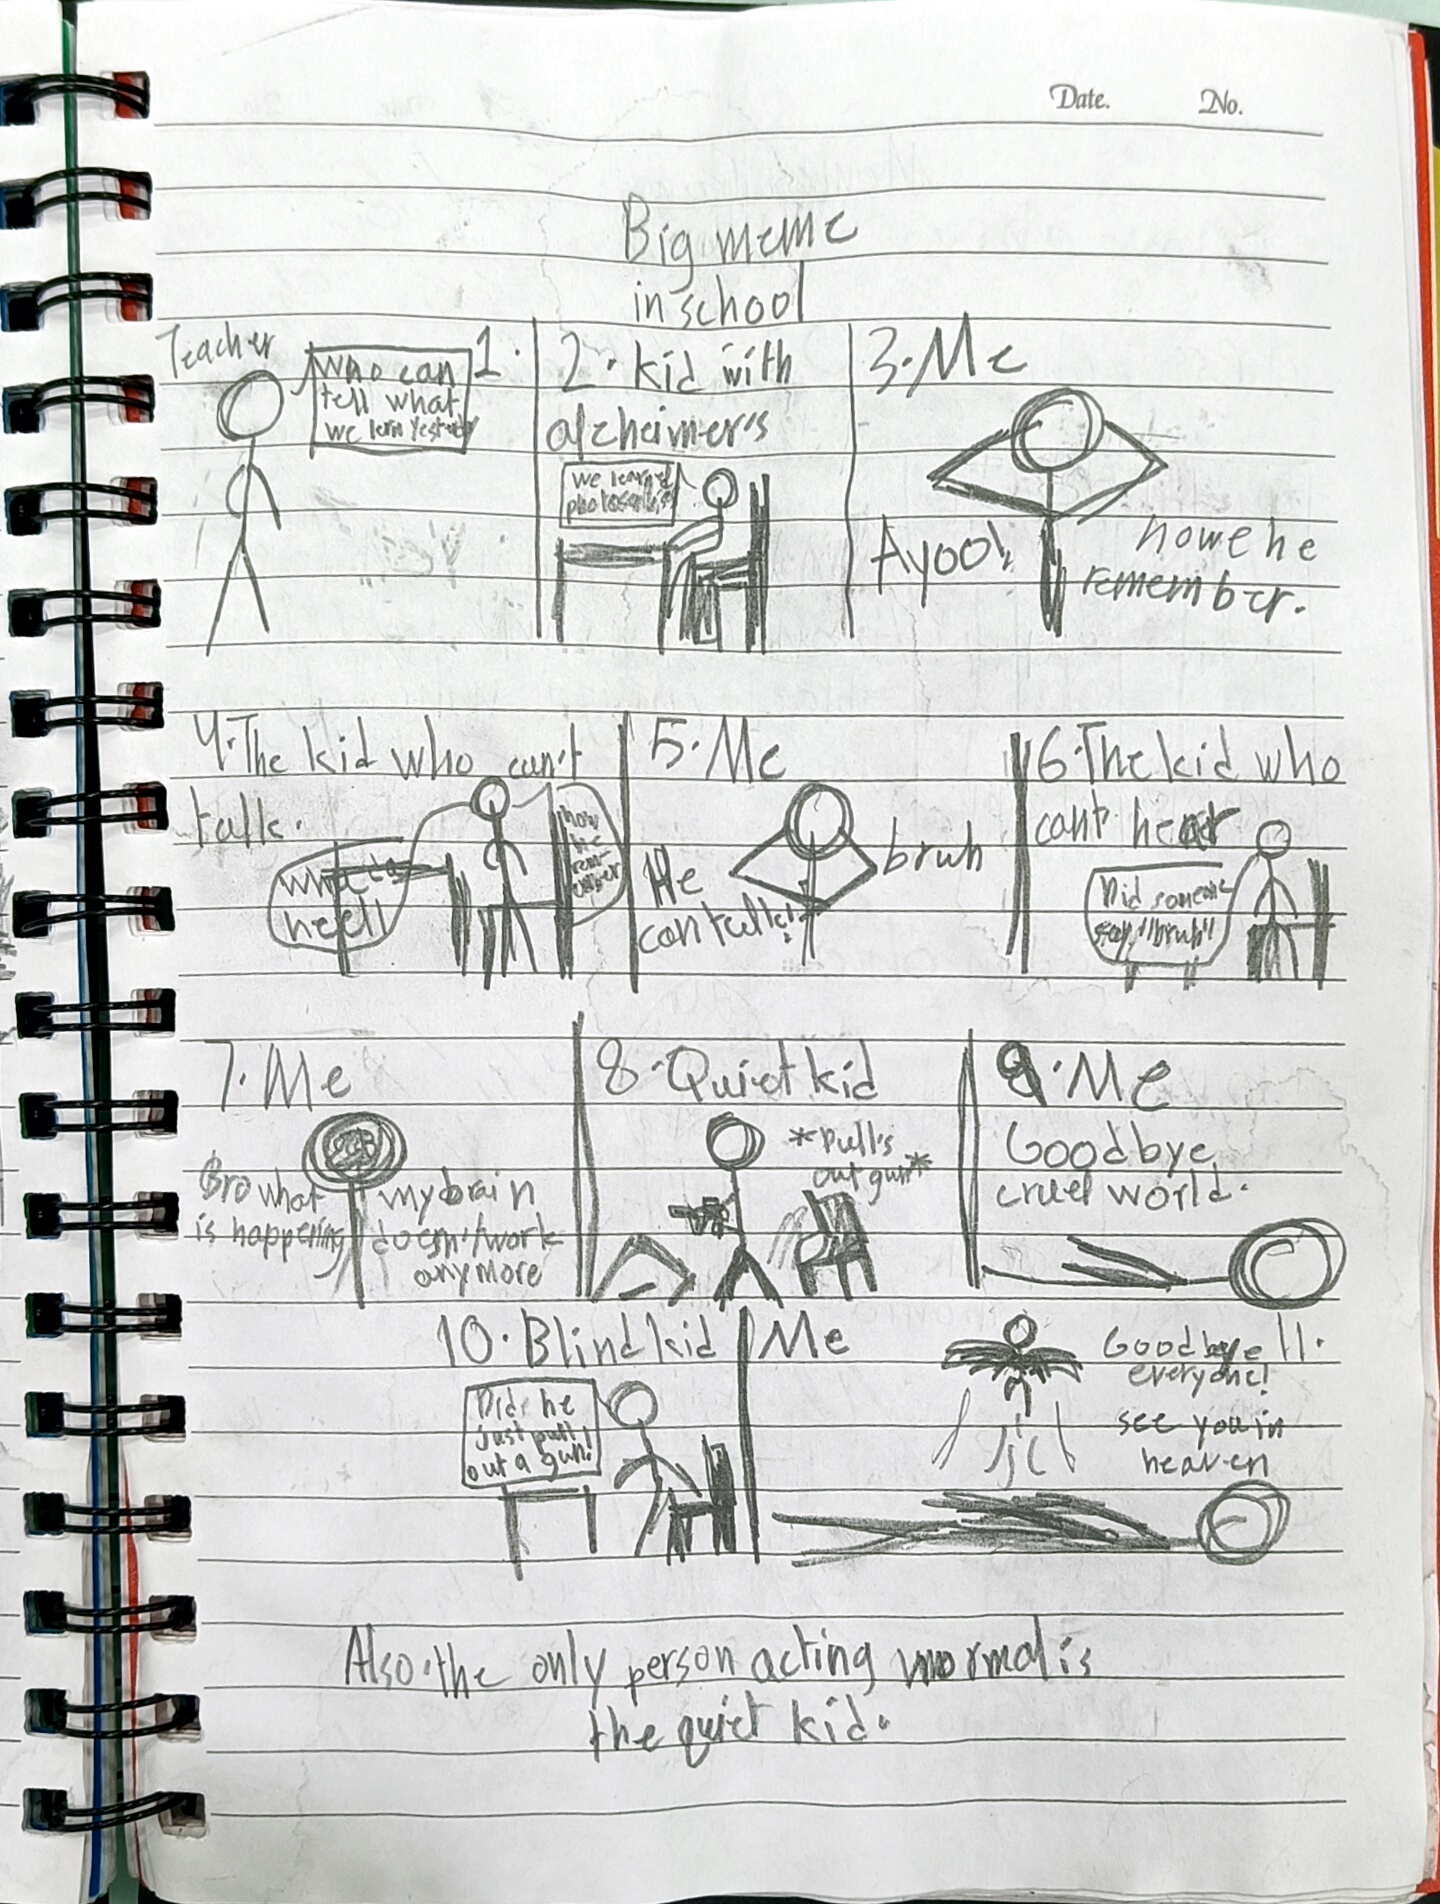 Date. No.
Big meme
in school
Teacher
1.
who can
tell what
we lern yesterday
2. kid with
alzheimer's
we learned
3. Me
Ayoo!
howe he
remember.
4. The kid who can't
talk.
what da
heell
how
he
rem-
ember
5. Me
He
can talk!
bruh
6. The kid who
cant hear
Did someone
say "bruh"!
7. Me
Bro what
is happening
my brain
doesn't work
anymore
8. Quiet kid
*Pull's
out gun*
9. Me
Goodbye
cruel world.
10. Blind kid
Did he
just pull
out a gun!
Me
11.
Goodbye
everyone!
see you in
heaven
Also. the only person acting normal is
the quiet kid.